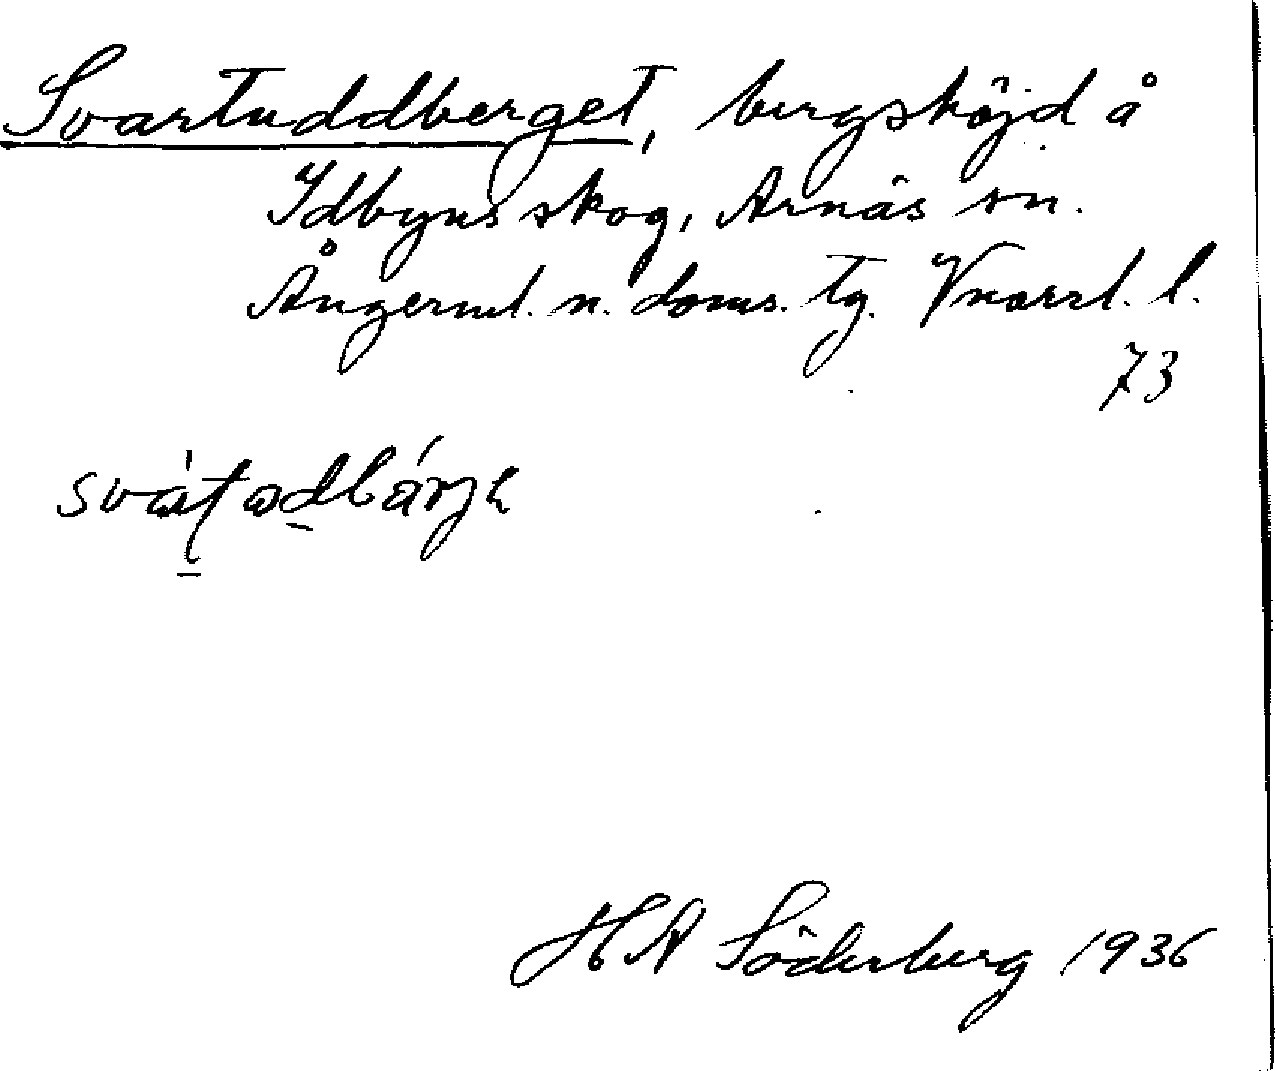 Svartuddberget, bergshöjd å
Idbyns skog, Arnäs sn.
Ångerml. n. doms. tg. Vnorrl. l.
73
H A Söderberg 1936